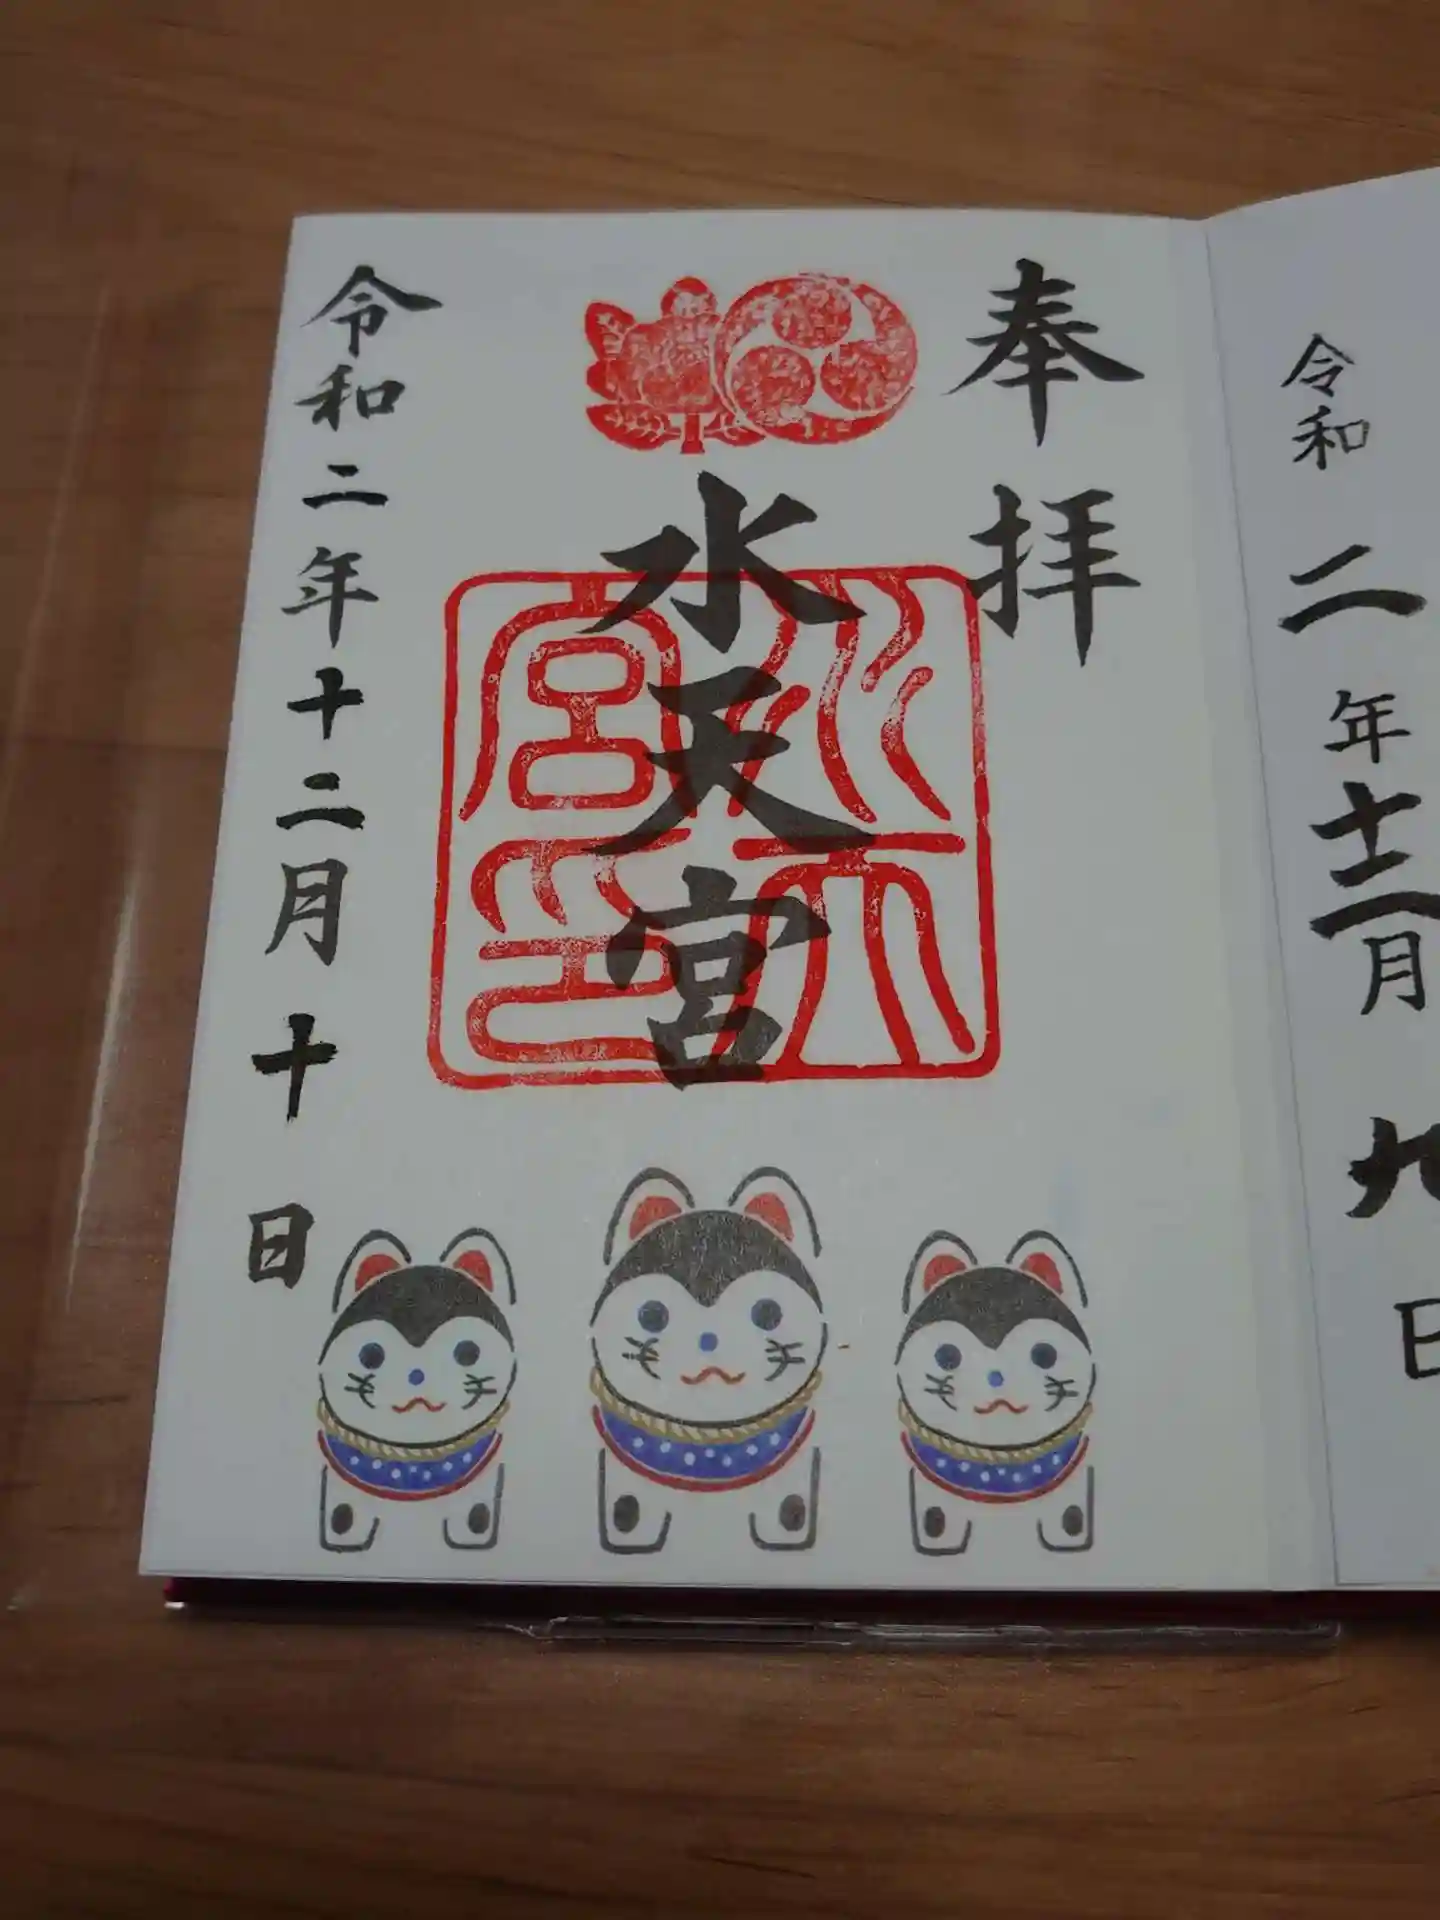 令和二年十二月九日
奉拝
水天宮
水天宮印
令和二年十二月十日